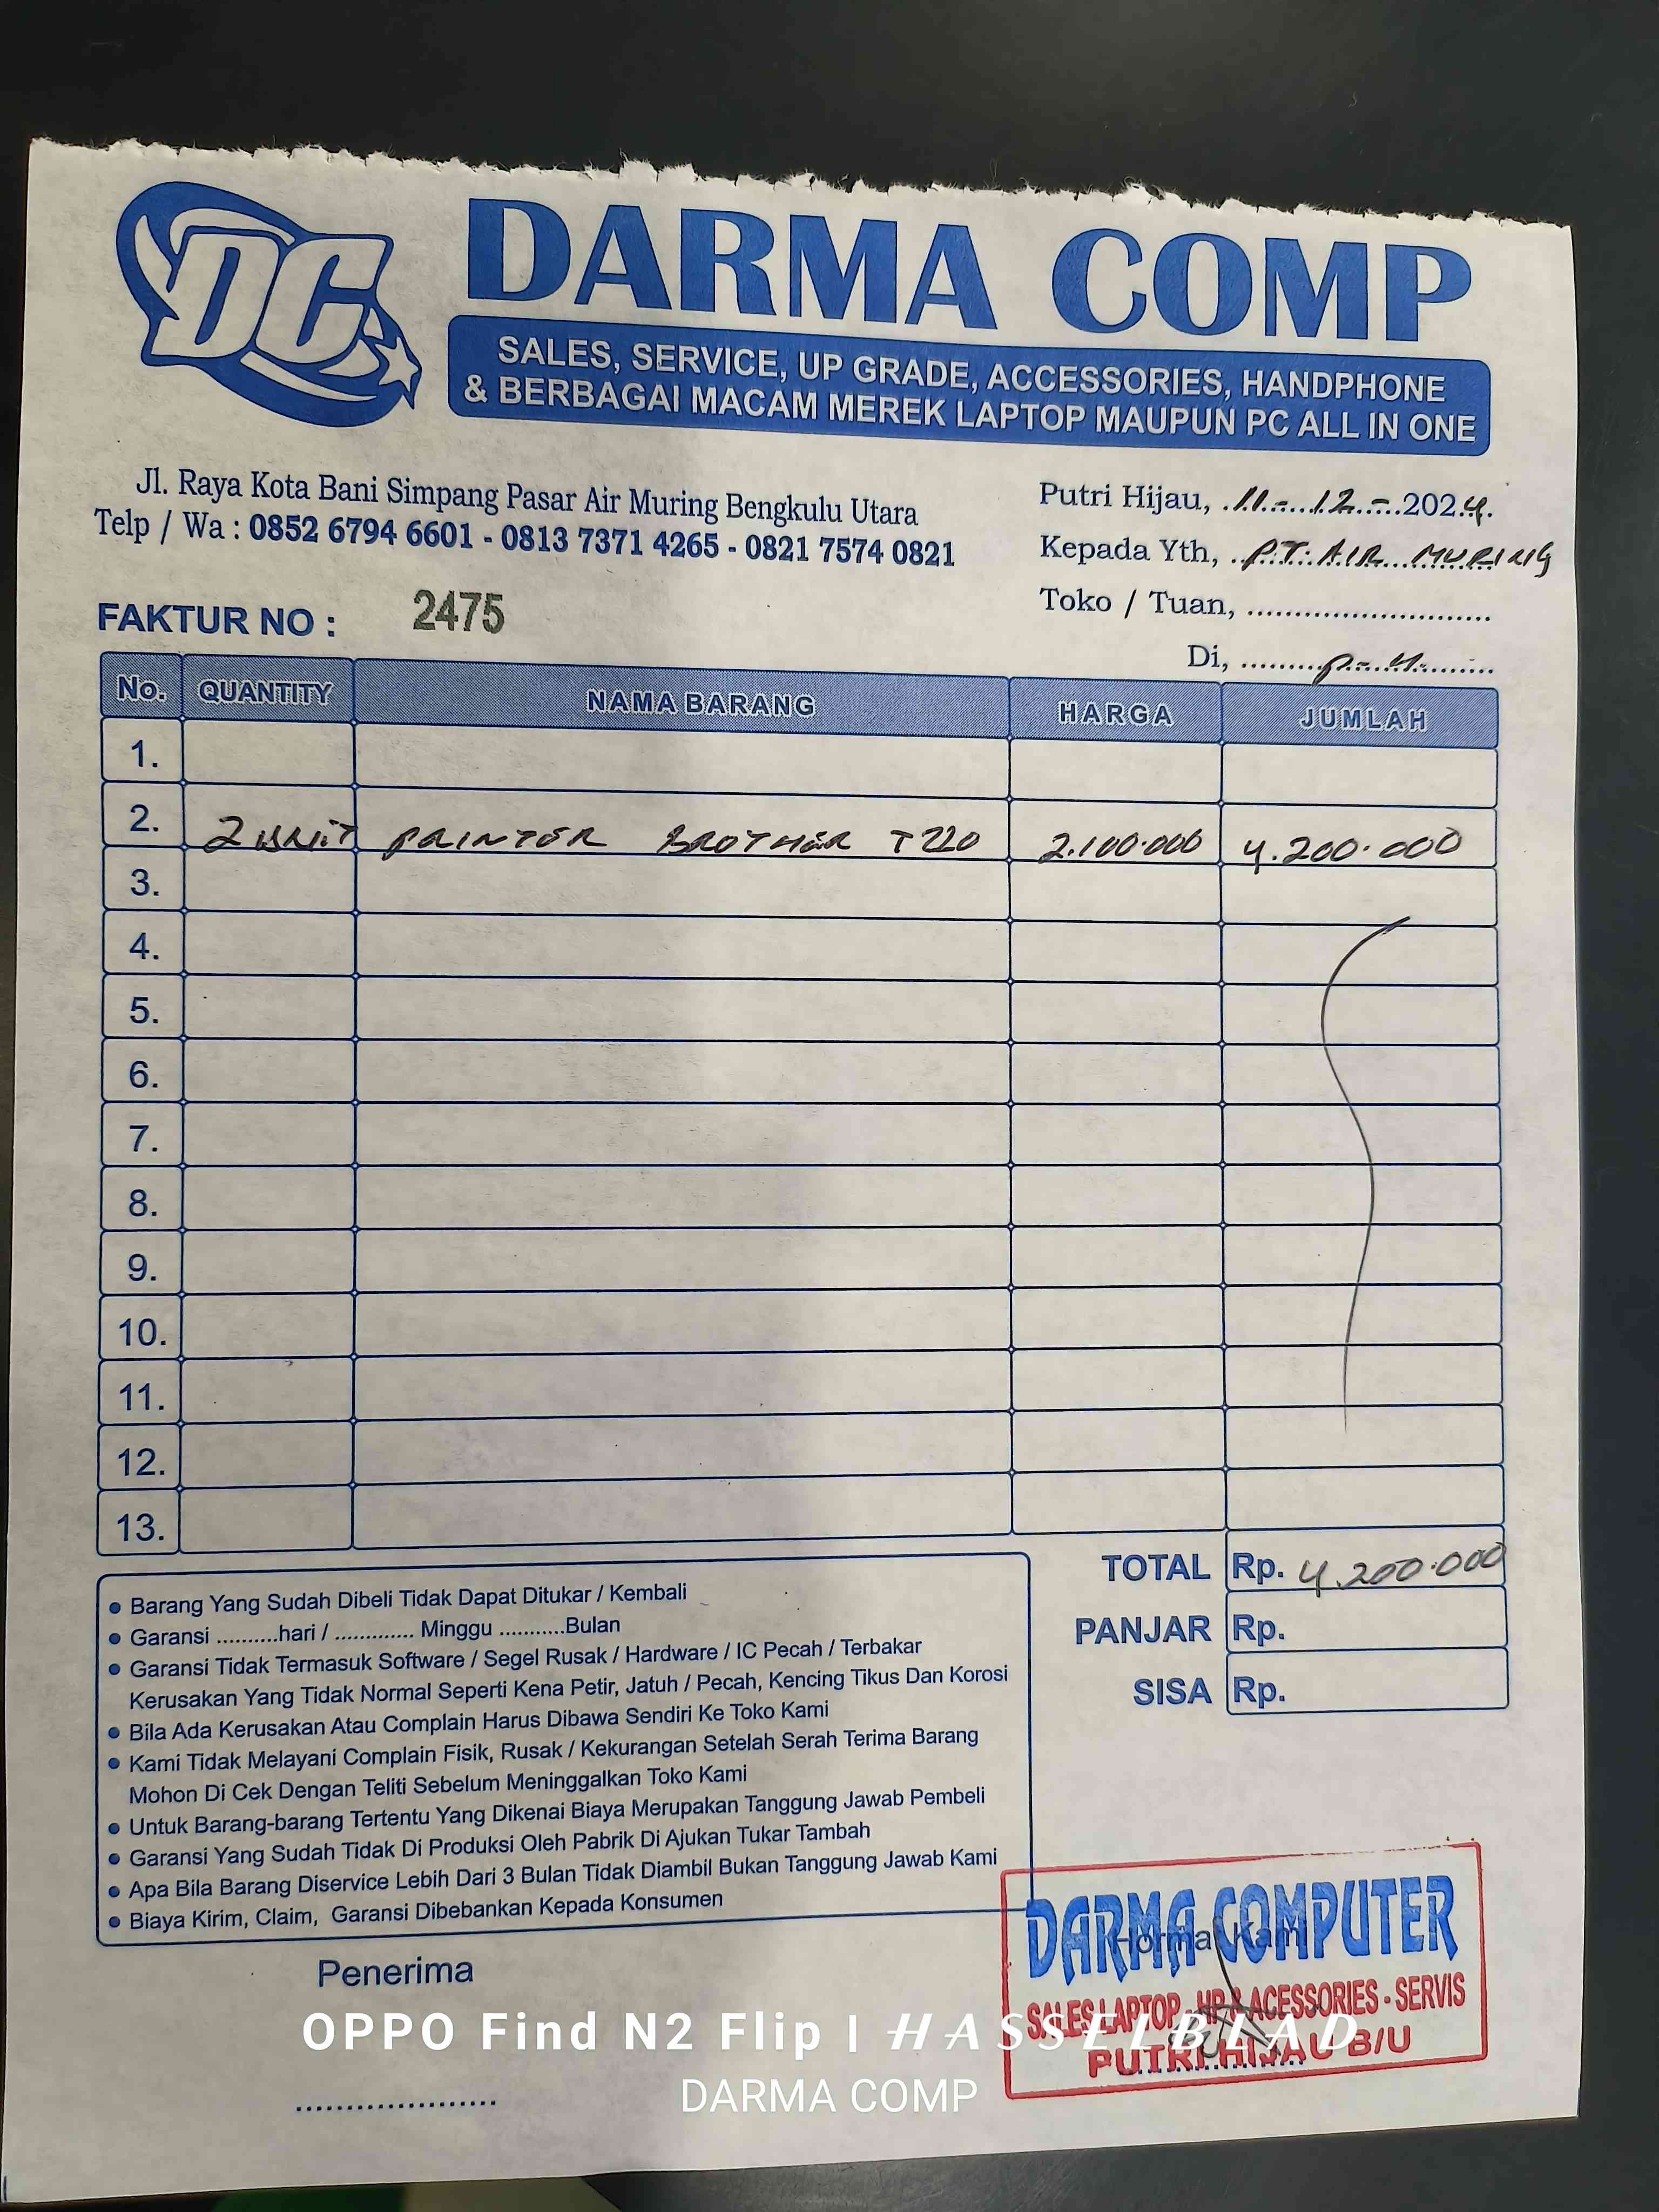 DC
DARMA COMP
SALES, SERVICE, UP GRADE, ACCESSORIES, HANDPHONE
& BERBAGAI MACAM MEREK LAPTOP MAUPUN PC ALL IN ONE
Jl. Raya Kota Bani Simpang Pasar Air Muring Bengkulu Utara
Telp / Wa : 0852 6794 6601 - 0813 7371 4265 - 0821 7574 0821
Putri Hijau, 11 - 12 - 2024.
Kepada Yth, PT. AIR MURING
Toko / Tuan, ..........................
Di, P-H
FAKTUR NO : 2475
No. QUANTITY NAMA BARANG HARGA JUMLAH
1.
2. 2 UNIT PRINTER BROTHER T220 2.100.000 4.200.000
3.
4.
5.
6.
7.
8.
9.
10.
11.
12.
13.
TOTAL Rp. 4.200.000
PANJAR Rp.
SISA Rp.
• Barang Yang Sudah Dibeli Tidak Dapat Ditukar / Kembali
• Garansi ..........hari / ............. Minggu ...........Bulan
• Garansi Tidak Termasuk Software / Segel Rusak / Hardware / IC Pecah / Terbakar
Kerusakan Yang Tidak Normal Seperti Kena Petir, Jatuh / Pecah, Kencing Tikus Dan Korosi
• Bila Ada Kerusakan Atau Complain Harus Dibawa Sendiri Ke Toko Kami
• Kami Tidak Melayani Complain Fisik, Rusak / Kekurangan Setelah Serah Terima Barang
Mohon Di Cek Dengan Teliti Sebelum Meninggalkan Toko Kami
• Untuk Barang-barang Tertentu Yang Dikenai Biaya Merupakan Tanggung Jawab Pembeli
• Garansi Yang Sudah Tidak Di Produksi Oleh Pabrik Di Ajukan Tukar Tambah
• Apa Bila Barang Diservice Lebih Dari 3 Bulan Tidak Diambil Bukan Tanggung Jawab Kami
• Biaya Kirim, Claim, Garansi Dibebankan Kepada Konsumen
Penerima
.....................
Hormat Kami
DARMA COMPUTER
SALES LAPTOP - HP & ACESSORIES - SERVIS
PUTRI HIJAU B/U
OPPO Find N2 Flip | HASSELBLAD
DARMA COMP